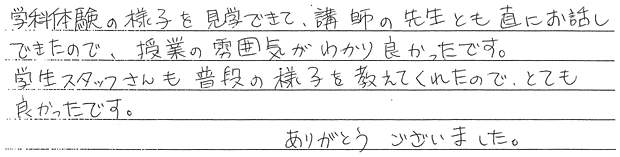 学科体験の様子を見学できて、講師の先生とも直にお話し
できたので、授業の雰囲気がわかり良かったです。
学生スタッフさんも普段の様子を教えてくれたので、とても
良かったです。
ありがとうございました。